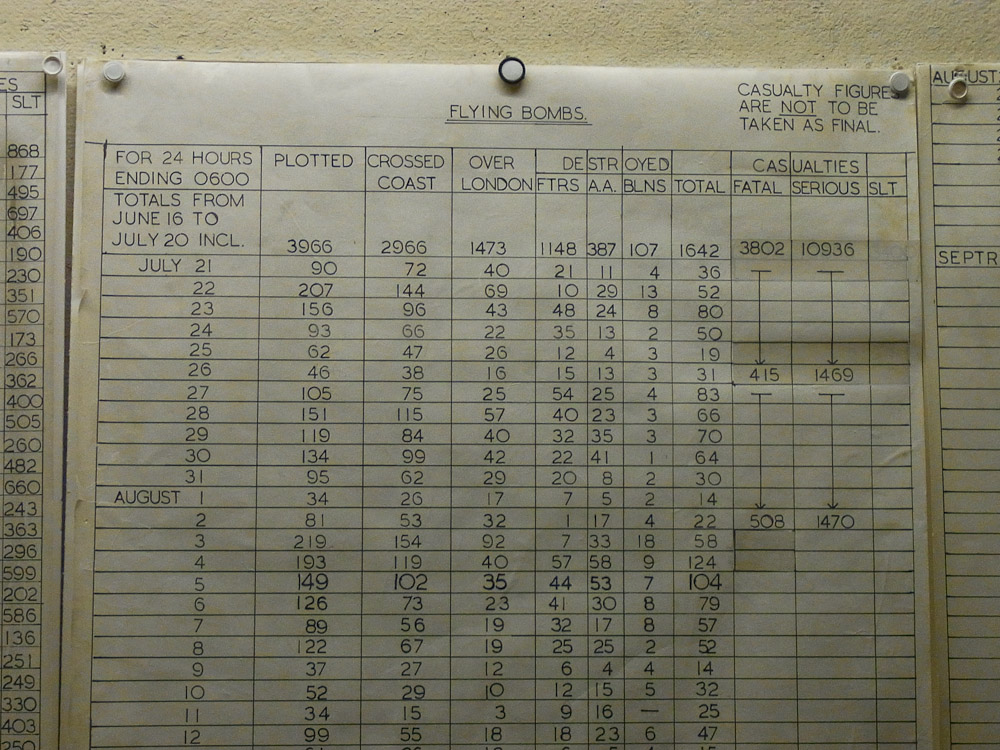 ES
SLT
868
177
495
697
406
190
230
351
570
173
266
362
400
505
260
482
660
243
363
296
599
202
586
136
251
249
330
403
250
FLYING BOMBS.
CASUALTY FIGURES
ARE NOT TO BE
TAKEN AS FINAL.
FOR 24 HOURS ENDING 0600 PLOTTED CROSSED COAST OVER LONDON DESTROYED CASUALTIES
FTRS A.A. BLNS TOTAL FATAL SERIOUS SLT
TOTALS FROM
JUNE 16 TO
JULY 20 INCL. 3966 2966 1473 1148 387 107 1642 3802 10936
JULY 21 90 72 40 21 11 4 36
22 207 144 69 10 29 13 52
23 156 96 43 48 24 8 80
24 93 66 22 35 13 2 50
25 62 47 26 12 4 3 19
26 46 38 16 15 13 3 31 415 1469
27 105 75 25 54 25 4 83
28 151 115 57 40 23 3 66
29 119 84 40 32 35 3 70
30 134 99 42 22 41 1 64
31 95 62 29 20 8 2 30
AUGUST 1 34 26 17 7 5 2 14
2 81 53 32 1 17 4 22 508 1470
3 219 154 92 7 33 18 58
4 193 119 40 57 58 9 124
5 149 102 35 44 53 7 104
6 126 73 23 41 30 8 79
7 89 56 19 32 17 8 57
8 122 67 19 25 25 2 52
9 37 27 12 6 4 4 14
10 52 29 10 12 15 5 32
11 34 15 3 9 16 — 25
12 99 55 18 18 23 6 47
AUGUST
SEPTR